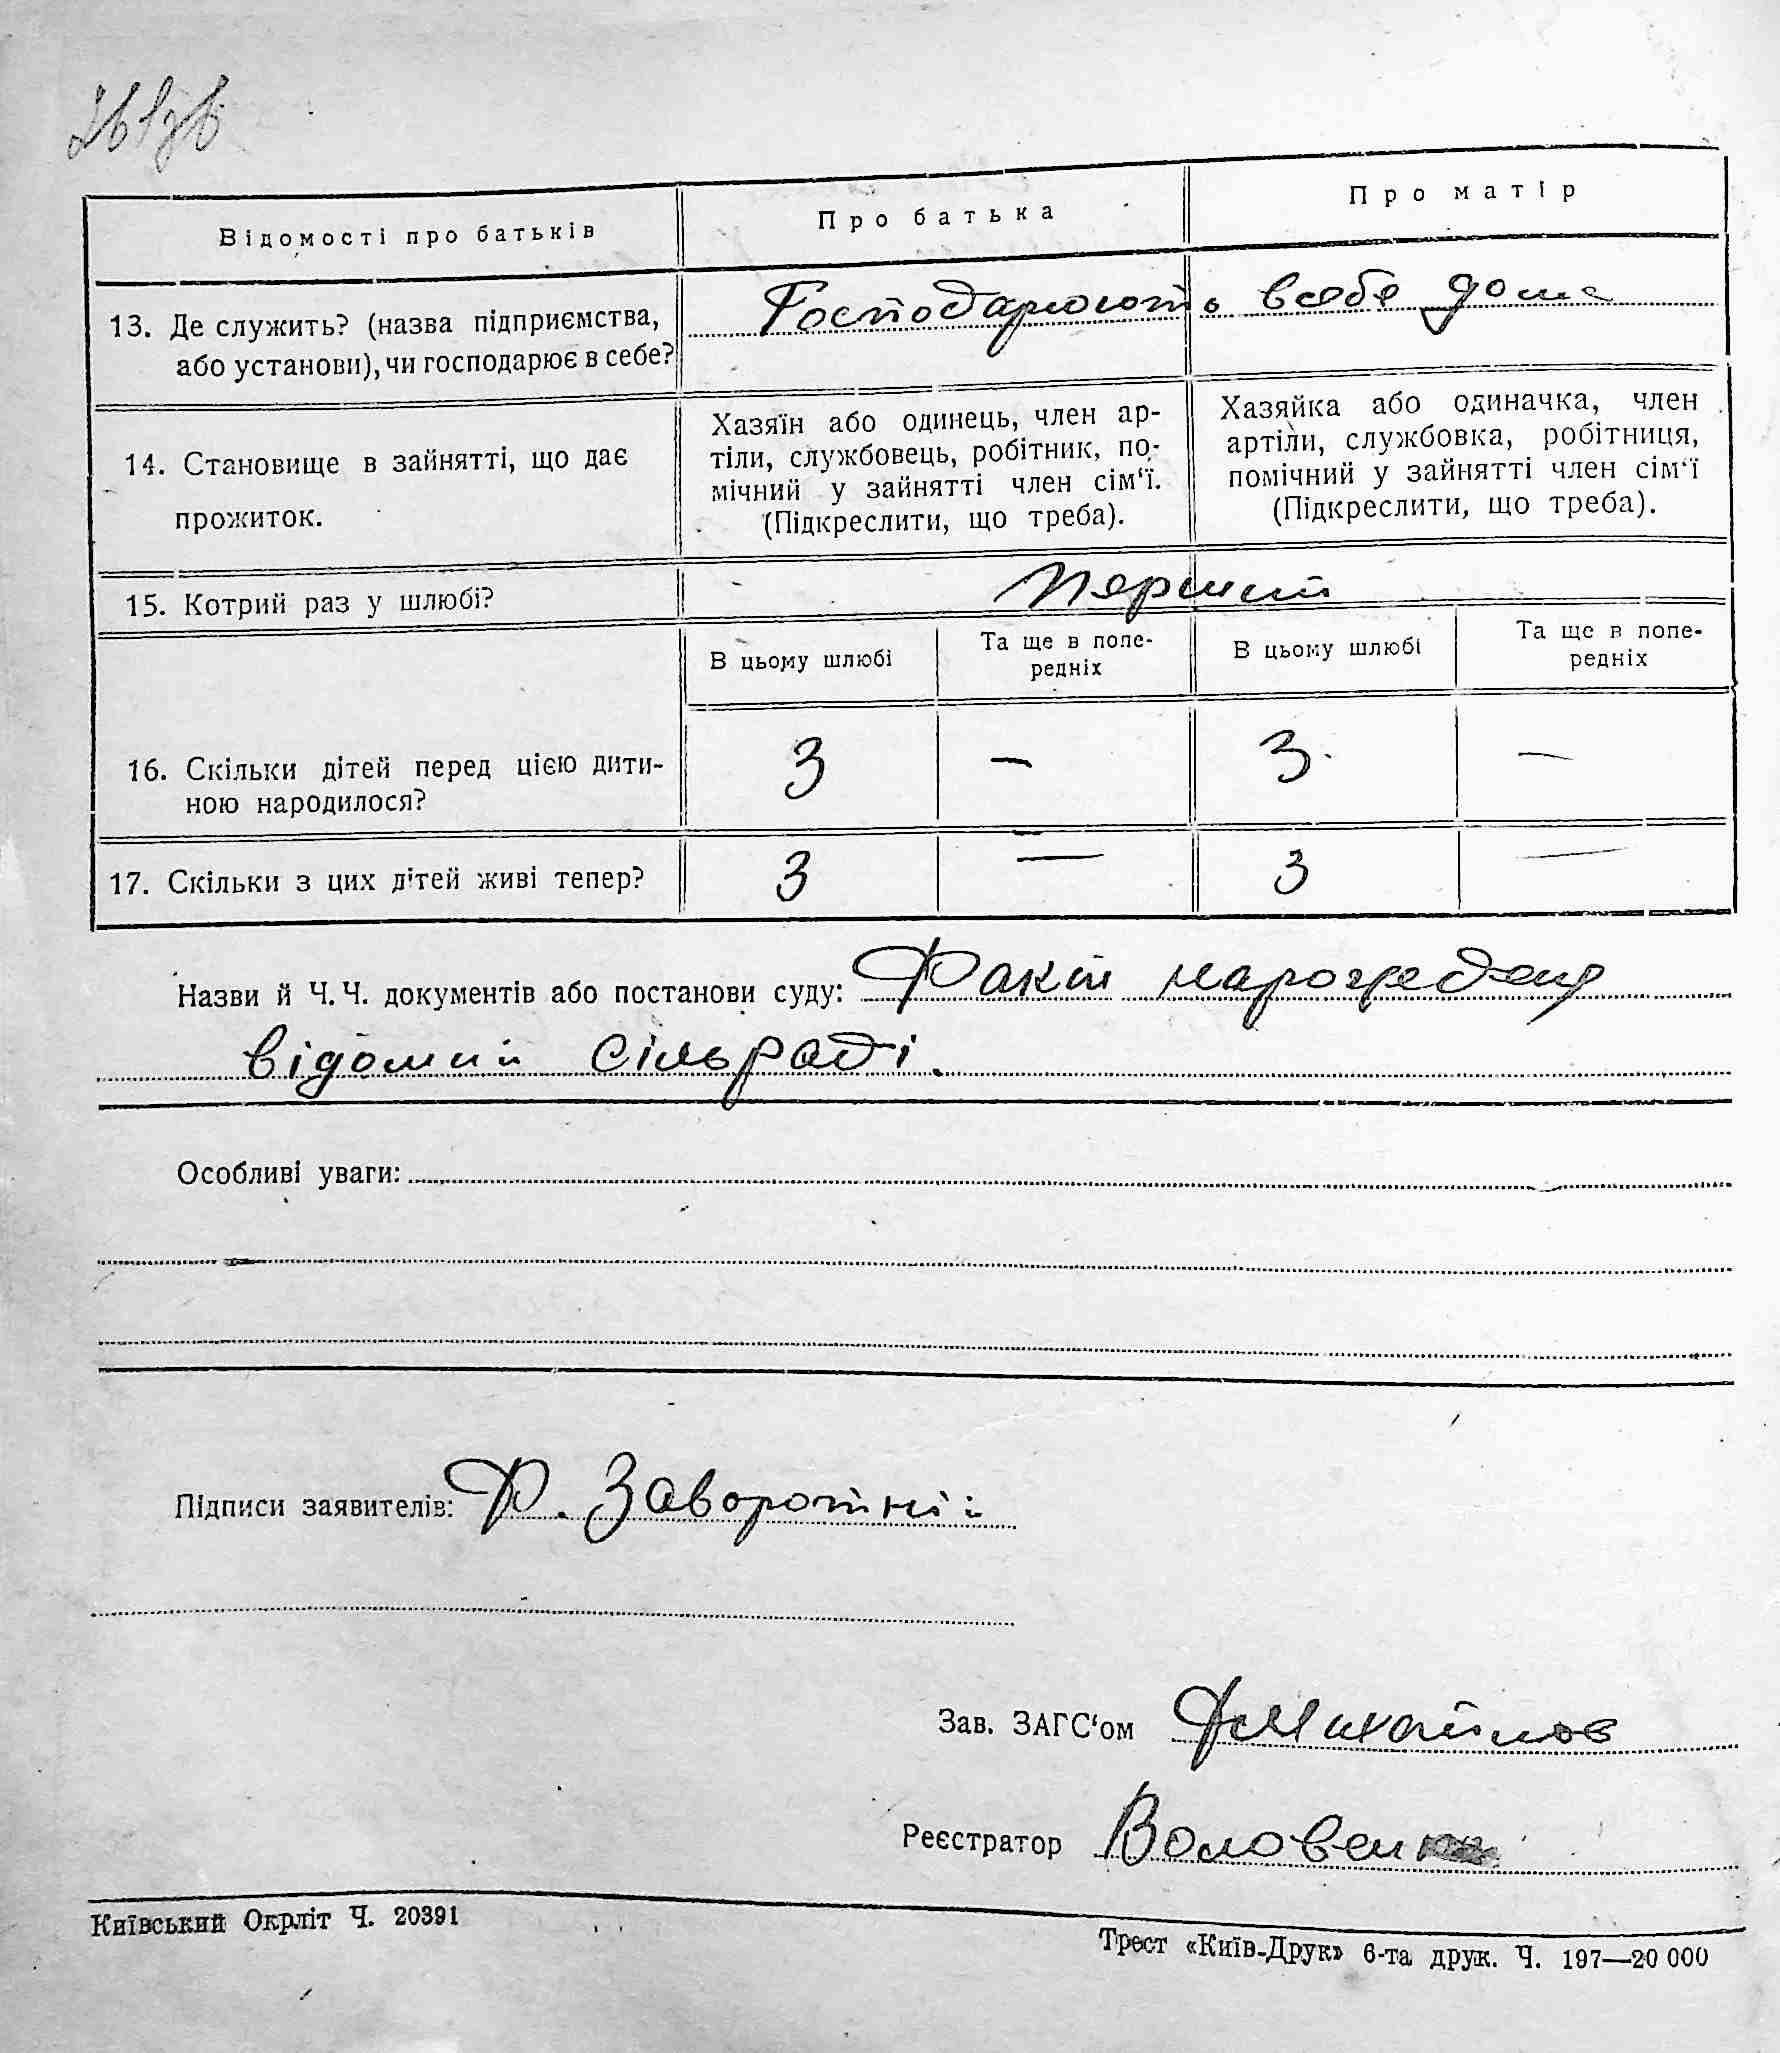 Відомості про батьків
Про батька
Про матір
13. Де служить? (назва підприємства,
або установи), чи господарює в себе?
Господарюють в себе дома
14. Становище в зайнятті, що дає
прожиток.
Хазяїн або одинець, член ар-
тіли, службовець, робітник, по-
мічний у зайнятті член сім‘ї.
(Підкреслити, що треба).
Хазяйка або одиначка, член
артіли, службовка, робітниця,
помічний у зайнятті член сім‘ї
(Підкреслити, що треба).
15. Котрий раз у шлюбі?
Перший
В цьому шлюбі
Та ще в попе-
редніх
В цьому шлюбі
Та ще в попе-
редніх
16. Скільки дітей перед цією дити-
ною народилося?
3 — 3 —
17. Скільки з цих дітей живі тепер?
3 — 3 —
Назви й Ч. Ч. документів або постанови суду: Факт народження
відомий сільраді.
Особливі уваги:
Підписи заявителів: Ф. Заворотній
Зав. ЗАГС‘ом Михайлов
Реєстратор
Київський Окрліт Ч. 20391
Трест «Київ-Друк» 6-та друк. Ч. 197—20 000